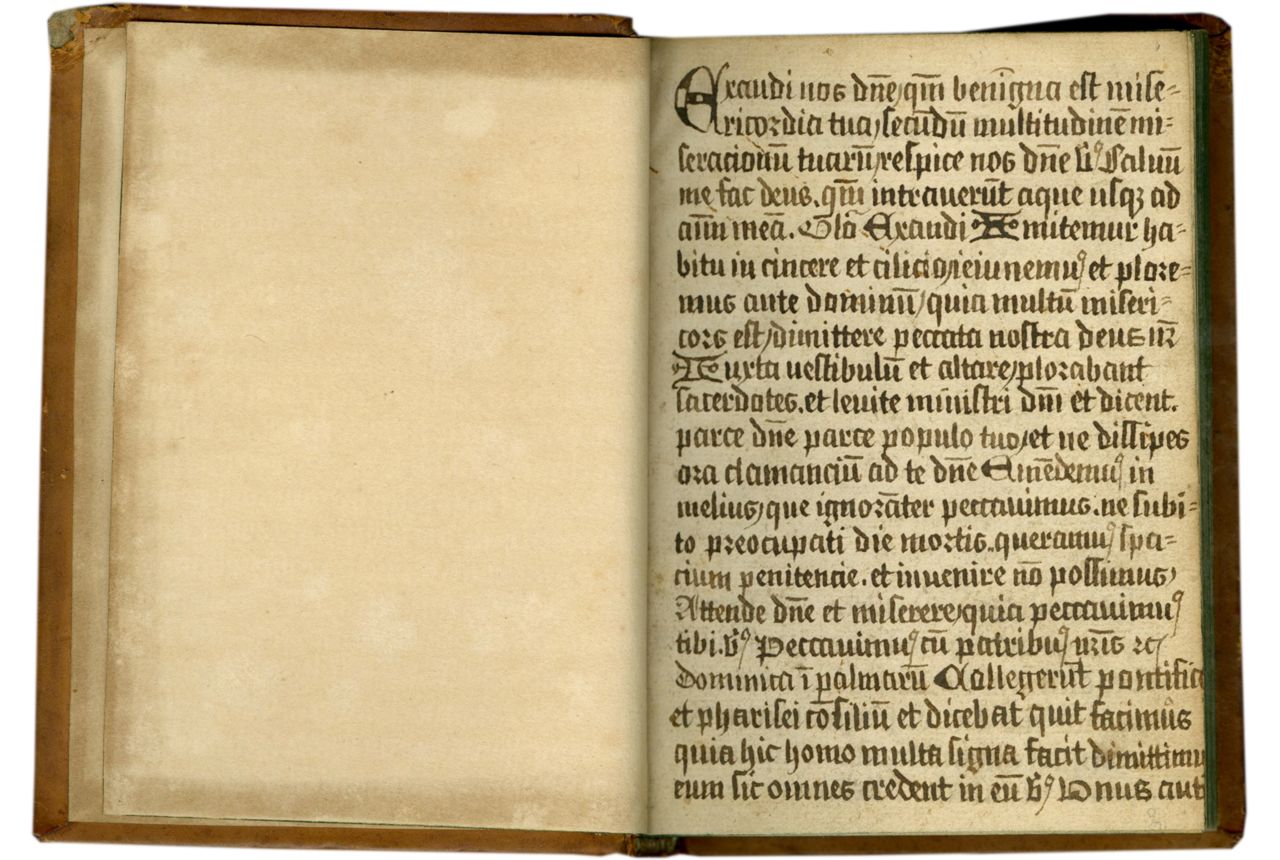 Exaudi nos dn̄e, qm̄ benīgna est mise-
ricordia tua, secūdū multitudinē mi-
seracionū tuarū, respice nos dn̄e v̉ Saluū
me fac deus. qm̄ intrauerūt aque usqꝫ ad
aīm meā. Glā Exaudi Inmitemur ha-
bitu in cinere et cilicio, ieiunemꝰ et plore-
mus ante dominū, quia multū miseri-
cors est, dimittere peccata nostra deus nr̄
Iuxta uestibulū et altare, plorabant
sacerdotes. et leuite ministri dn̄i et dicent.
parce dn̄e parce populo tuo, et ne dissipes
ora clamanciū ad te dn̄e Emēdemꝰ in
melius, que ignorāter peccauimus. ne subi-
to preocupati die mortis. queramꝰ spa-
cium penitencie. et inuenire nō possimus,
Attende dn̄e et miserere, quia peccauimꝰ
tibi. v̉ Peccauimꝰ cū patribꝰ nr̄is ꝛc
Dominica ī palmarū Collegerūt pontifice
et pharisei cōsiliū et dicebāt quit facimus
quia hic homo multa signa facit dimittimu
eum sic omnes credent in eū v̉ Unus aut